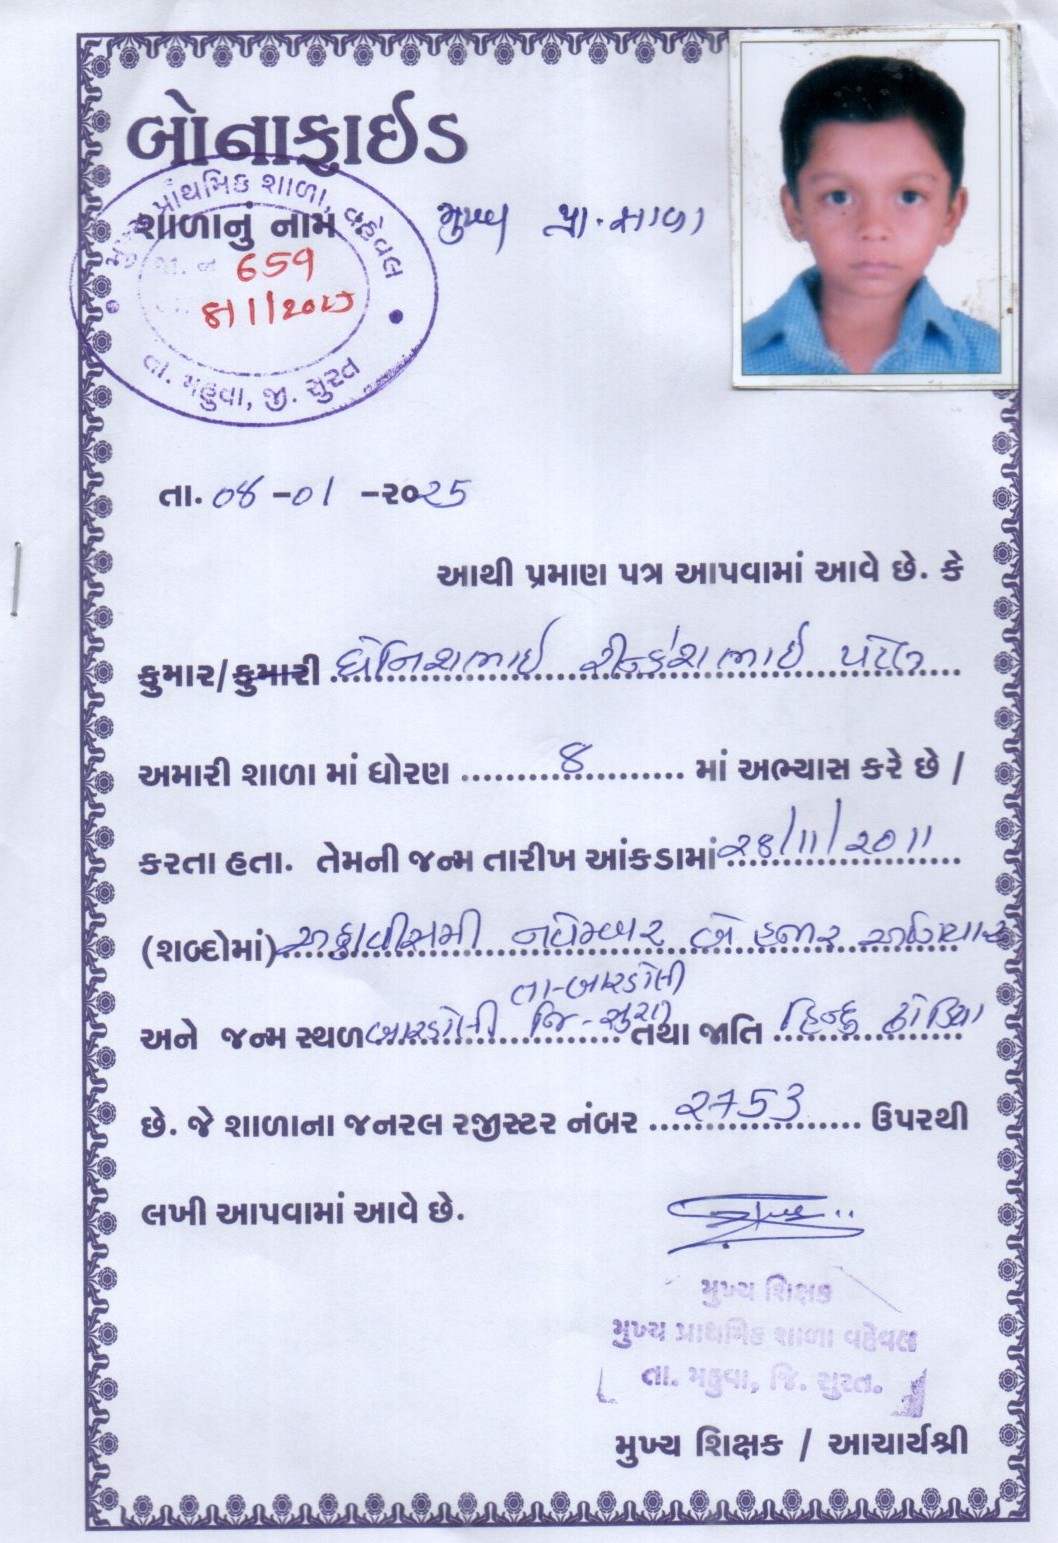 બોનાફાઈડ
મુખ્ય પ્રાથમિક શાળા, વહેવલ
શાળાનું નામ મુખ્ય પ્રા. શાળા
જા. નં 659
8/1/2025
તા. મહુવા, જી. સુરત
તા. 08 -01 -૨૦25
આથી પ્રમાણ પત્ર આપવામાં આવે છે. કે
કુમાર/કુમારી ધોનિશભાઈ રીન્કેશભાઈ પટેલ
અમારી શાળા માં ધોરણ 8 માં અભ્યાસ કરે છે /
કરતા હતા. તેમની જન્મ તારીખ આંકડામાં ૨૮/11/૨૦11
(શબ્દોમાં) અઠ્ઠાવીસમી નવેમ્બર બે હજાર અગિયાર
તા-બારડોલી
અને જન્મ સ્થળ બારડોલી જિ-સુરત તથા જાતિ હિન્દુ ઢોડિયા
છે. જે શાળાના જનરલ રજીસ્ટર નંબર ૨753 ઉપરથી
લખી આપવામાં આવે છે.
મુખ્ય શિક્ષક
મુખ્ય પ્રાથમિક શાળા વહેવલ
તા. મહુવા, જિ. સુરત.
મુખ્ય શિક્ષક / આચાર્યશ્રી